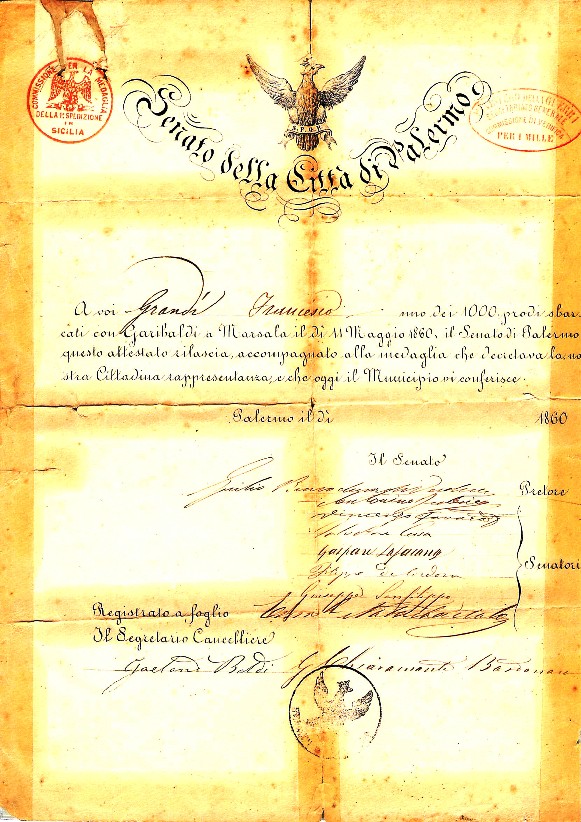 COMMISSIONE PER LA MEDAGLIA
DELLA Iª SPEDIZIONE
IN
SICILIA
S.P.Q.P.
PER I MILLE
Senato della Città di Palermo.
A voi Grandi Francesco uno dei 1000 prodi sbar-
cati con Garibaldi a Marsala il dì 11 Maggio 1860, il Senato di Palermo
questo attestato rilascia, accompagnato alla medaglia che decretava la no
stra Cittadina rappresentanza, e che oggi il Municipio vi conferisce.
Palermo il dì 1860
Il Senato
Giulio Pretore
Salvatore
Gaspare
Senatori
Giuseppe Sanfilippo
Registrato a foglio
Il Segretario Cancelliere
Gaetano G. Chiaramonte Bordonaro